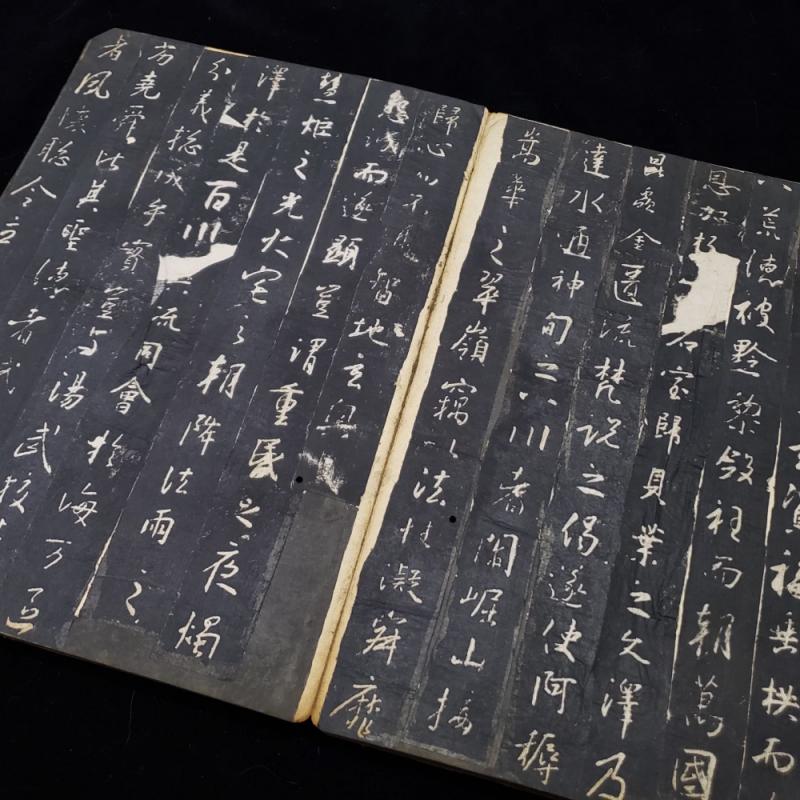 玄資福垂拱而
八荒德被黔黎斂衽而朝萬國
恩加朽石室歸貝葉之文澤及
昆蟲金匱流梵說之偈遂使阿耨
達水通神甸之八川耆闍崛山接
嵩華之翠嶺竊以法性凝寂靡
歸心而不通智地玄奧
懇誠而遂顯豈謂重昏之夜燭
慧炬之光火宅之朝降法雨之
澤於是百川流同會於海万區
分義總成乎實豈与湯武校
劣堯舜比其聖德者哉
者夙懷聰令立